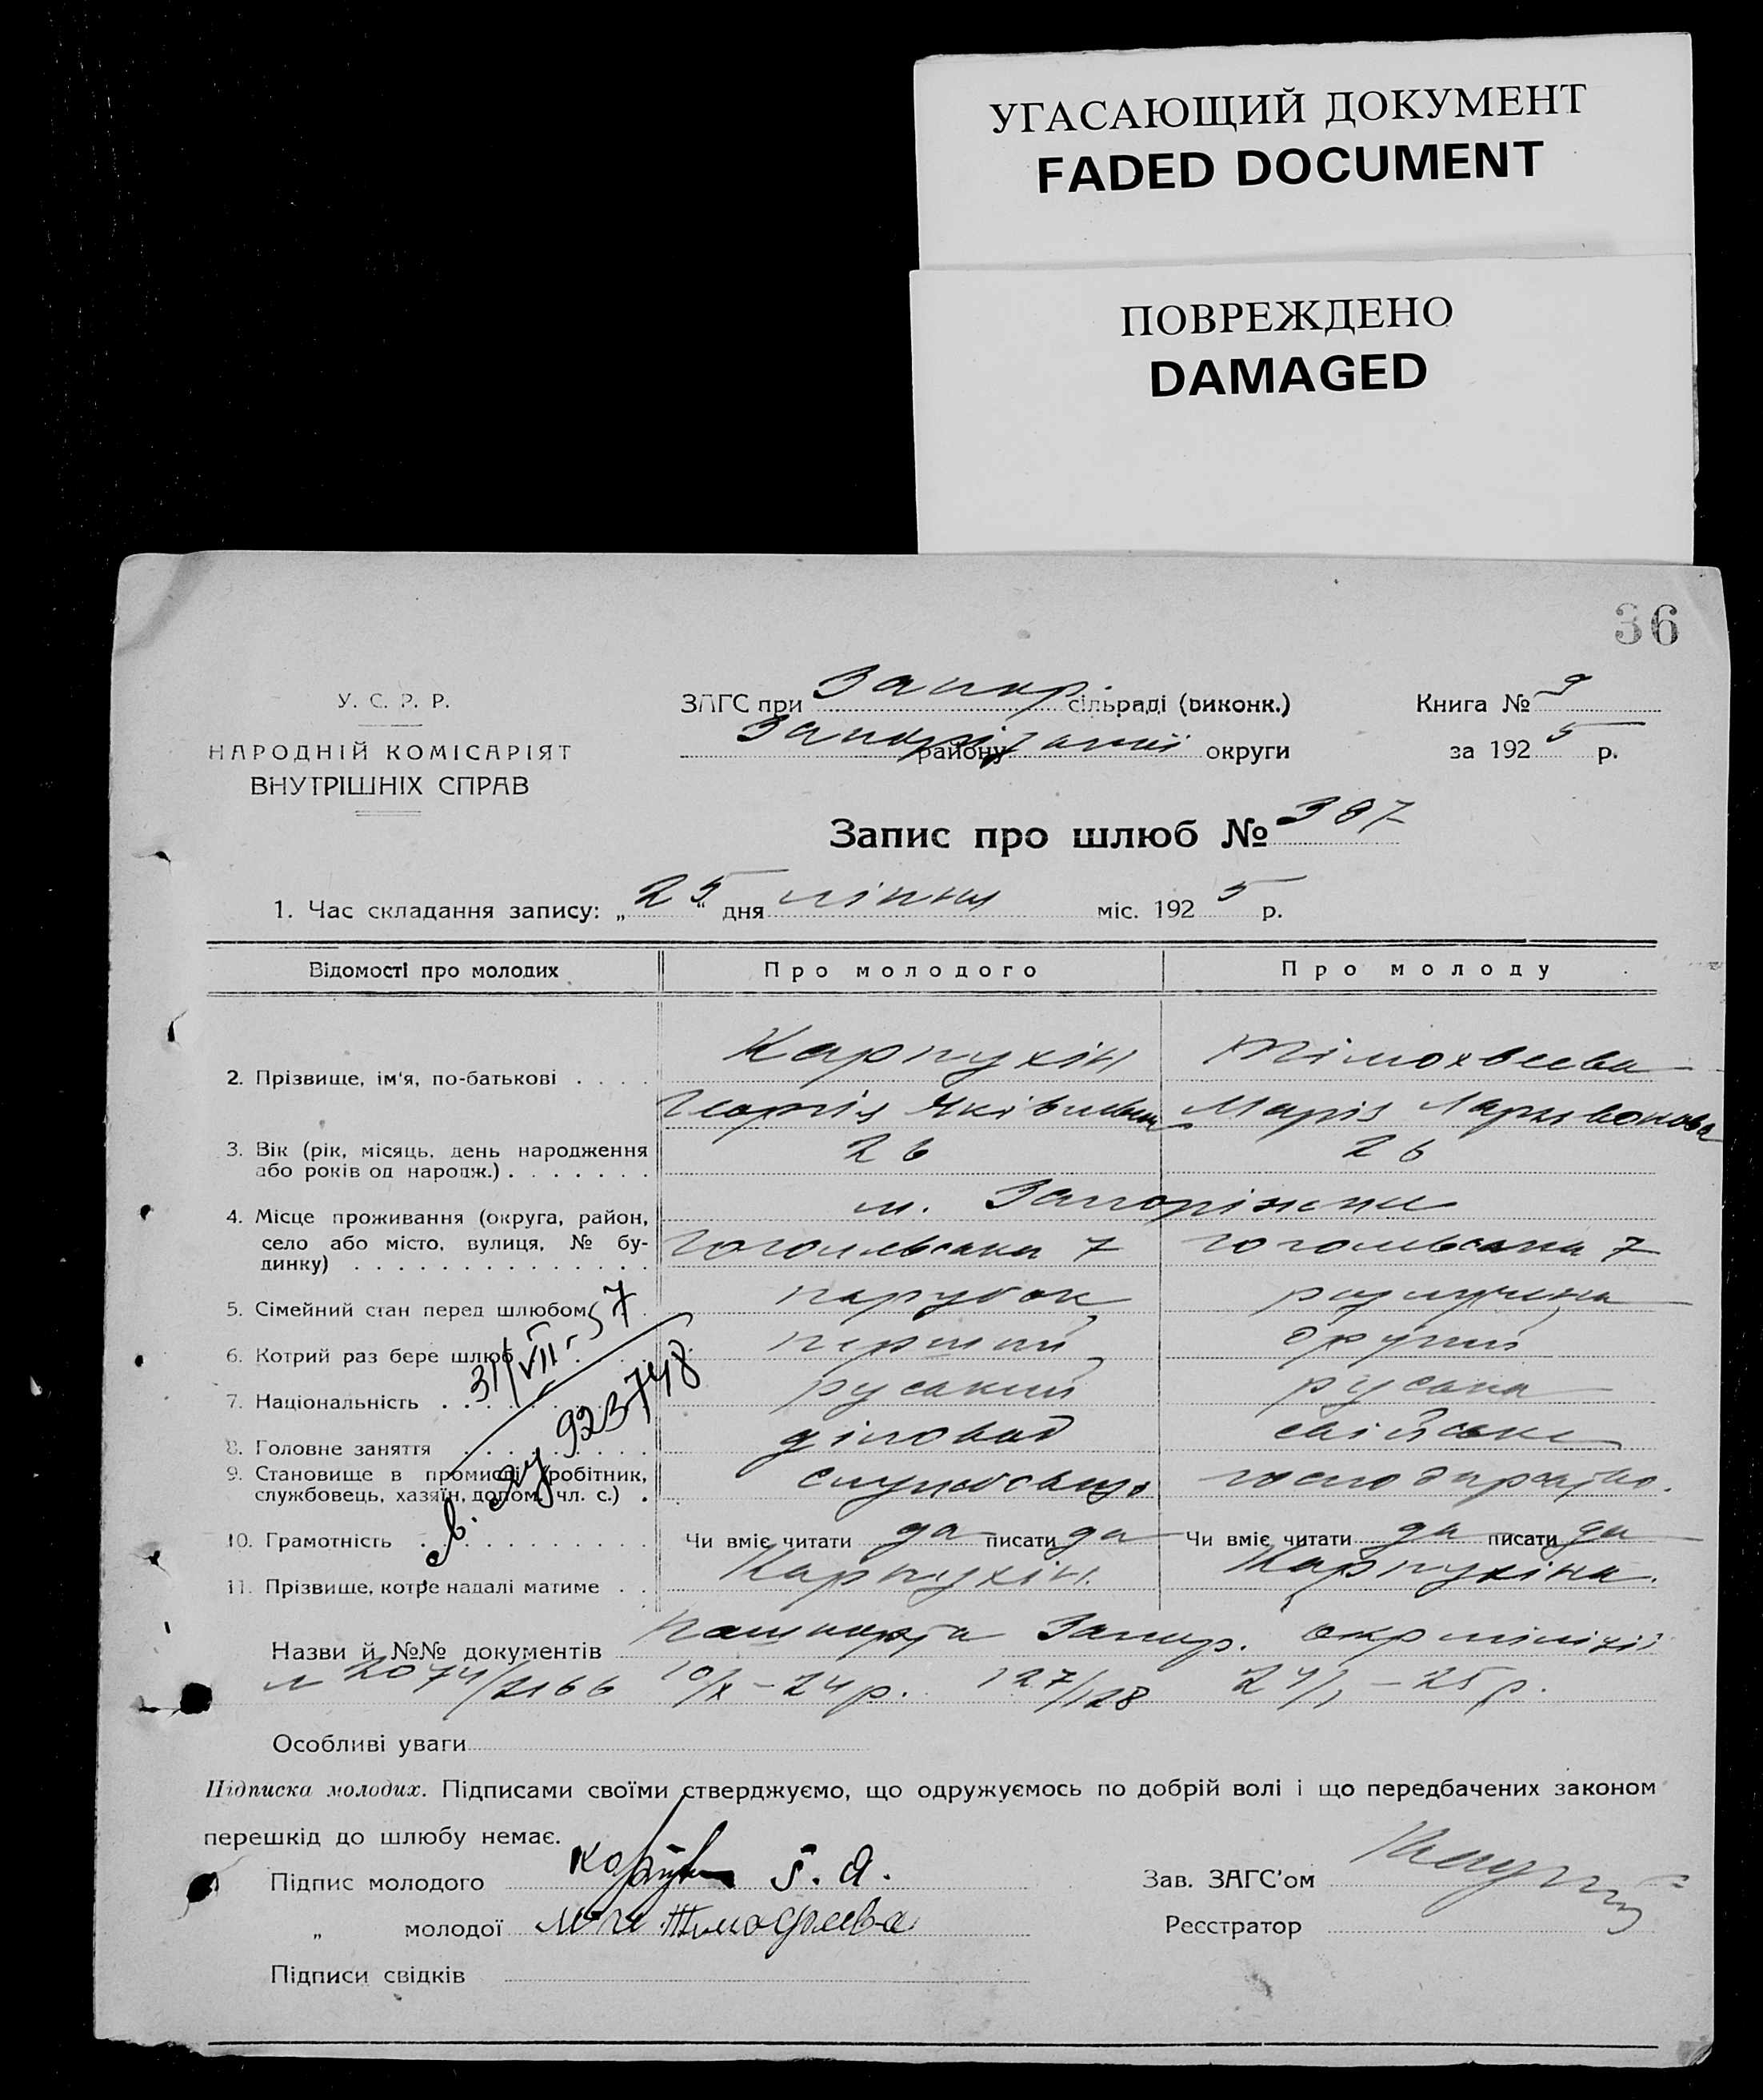 УГАСАЮЩИЙ ДОКУМЕНТ
FADED DOCUMENT
ПОВРЕЖДЕНО
DAMAGED
36
У. С. Р. Р.
НАРОДНІЙ КОМІСАРІЯТ
ВНУТРІШНІХ СПРАВ
ЗАГС при Запор. сільраді (виконк.)
району Запорізької округи
Книга № 9
за 1925 р.
Запис про шлюб № 387
1. Час складання запису: „25" дня ліпня міс. 1925 р.
Відомості про молодих Про молодого Про молоду
2. Прізвище, ім'я, по-батькові . . . . Карпухін Тімохвеева
Георгія Яківлевич Марія
3. Вік (рік, місяць, день народження
або років од народж.) . . . . . . . 26 26
4. Місце проживання (округа, район, м. Запоріжжя
село або місто, вулиця, № бу- Гоголевська 7 Гоголевська 7
динку) . . . . . . . . . . . . . .
5. Сімейний стан перед шлюбом парубок розлучена
6. Котрий раз бере шлюб перший другий
7. Національність . . . . руський руська
8. Головне заняття діловод свійське
9. Становище в промислі (робітник,
службовець, хазяїн, допом. чл. с.) . службовець господарство.
10. Грамотність . . . . . . . . . . Чи вміє читати да писати да Чи вміє читати да писати да
11. Прізвище, котре надалі матиме . . Карпухін. Карпухіна.
31/VII-57
923748
Назви й №№ документів Пашпорта Запор. окрміліції
№ 2074/2166 10/X - 24 р. 127/128 24/1 - 25 р.
Особливі уваги
Підписка молодих. Підписами своїми стверджуємо, що одружуємось по добрій волі і що передбачених законом
перешкід до шлюбу немає.
Підпис молодого
Зав. ЗАГС'ом
„ молодої Тимофеева
Реєстратор
Підписи свідків